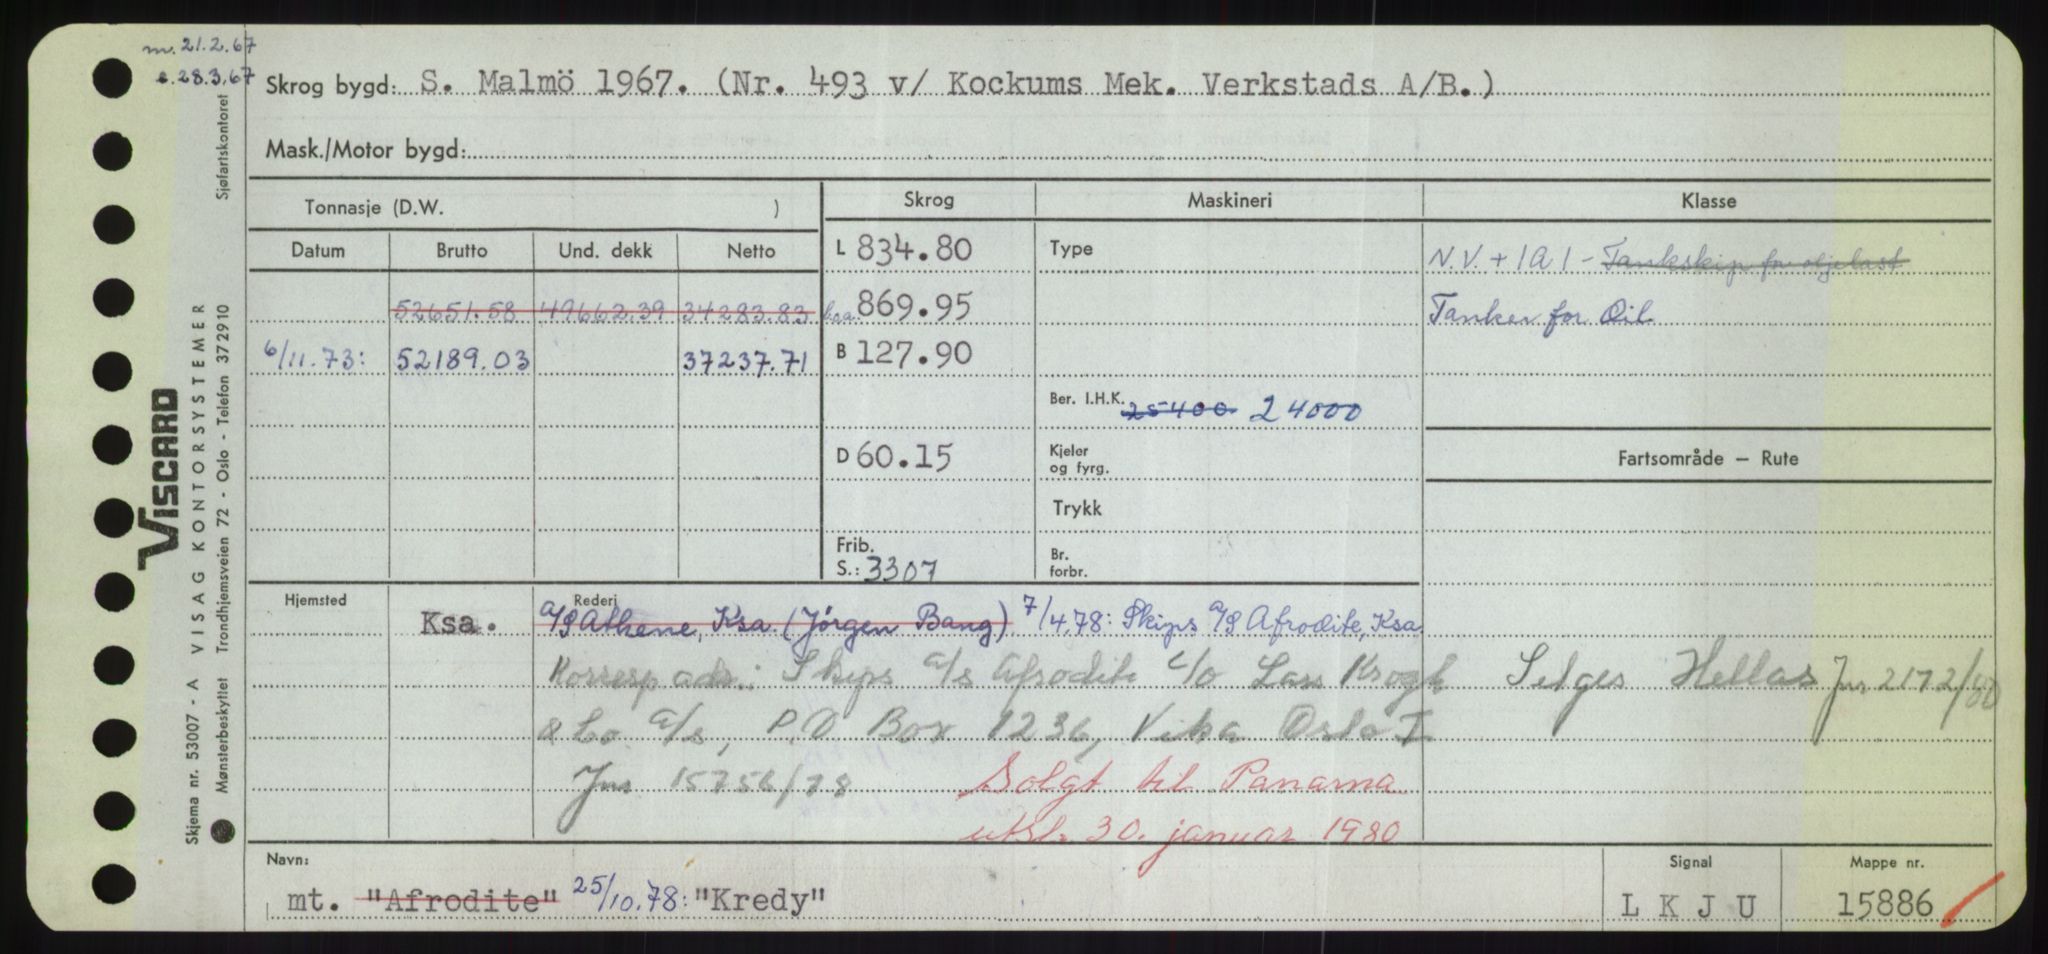 m. 21.2.67
s. 28.3.67
Skrog bygd: S. Malmö 1967. (Nr. 493 v/ Kockums Mek. Verkstads A/B.)
Mask./Motor bygd:
Tonnasje (D.W. ) Skrog Maskineri Klasse
Datum Brutto Und. dekk Netto L 834.80 Type N.V. + 1A1 - Tankskip for oljelast
52651.58 49662.39 34283.83 l.o.a. 869.95 Tanker for Oil
6/11.73: 52189.03 37237.71 B 127.90
Ber. I.H.K. 25400 24000
D 60.15 Kjeler og fyrg. Fartsområde — Rute
Trykk
Frib. S.: 3307 Br. forbr.
Hjemsted Rederi
Ksa. A/S Athene, Ksa. (Jørgen Bang) 7/4.78: Skips A/S Afrodite, Ksa.
Korresp adr.: Skips a/s Afrodite c/o Lars Krogh Selges Hellas Jnr 2172/80
& Co a/s, P.O Box 1236, Vika Oslo 1
Jnr 15756/78 Solgt til Panama
utsl. 30. januar 1980
Navn: Signal Mappe nr.
mt. "Afrodite" 25/10.78: "Kredy" L K J U 15886
Viscard
Skjema nr. 53007 - A VISAG KONTORSYSTEMER
Mønsterbeskyttet Trondhjemsveien 72 - Oslo - Telefon 372910 Sjøfartskontoret